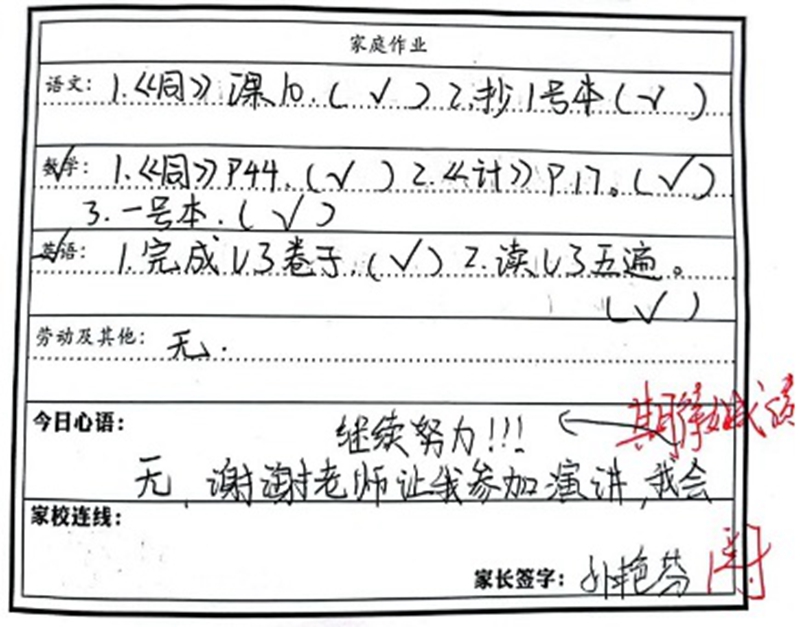 家庭作业
语文: 1.《同》课10.(√) 2.抄1号本(√)
数学: 1.《同》P44.(√) 2.《计》P17。(√)
3.一号本.(√)
英语: 1.完成U3卷子.(√) 2.读U3五遍。
(√)
劳动及其他: 无.
今日心语:
继续努力!!! ←
期待好成绩
无,谢谢老师让我参加演讲,我会
家校连线:
家长签字: 孙艳芬 阅